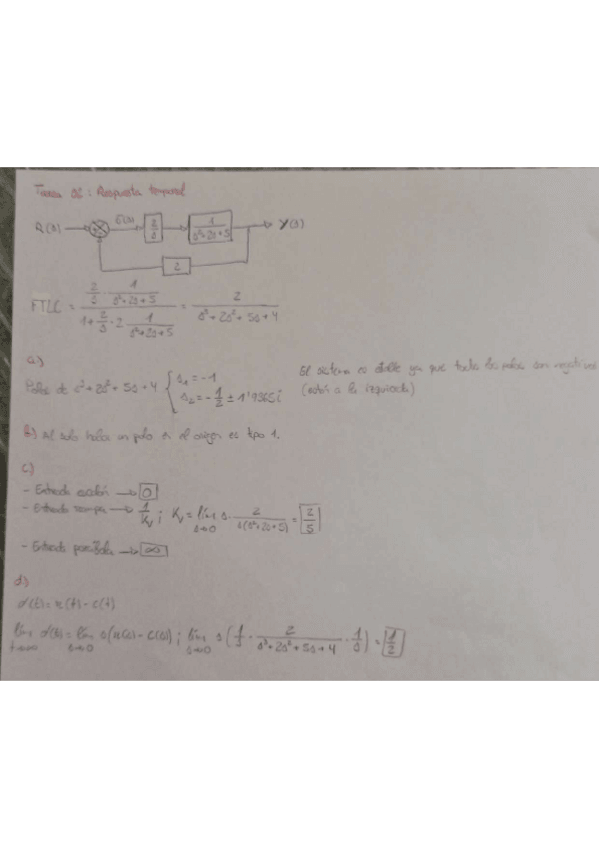 Tarea 02: Respuesta temporal
R(s) E(s) 2/s 1/(s²+2s+5) Y(s)
2
FTLC = (2/s · 1/(s²+2s+5)) / (1 + 2/s · 2 · 1/(s²+2s+5)) = 2/(s³+2s²+5s+4)
a)
Polos de s³+2s²+5s+4 { s₁ = -1
s₂ = -1/2 ± 1'9365i
El sistema es estable ya que todos los polos son negativos
(están a la izquierda)
b) Al solo haber un polo en el origen es tipo 1.
c)
- Entrada escalón → 0
- Entrada rampa → 1/Kv ; Kv = lím s→0 s · 2/(s(s²+2s+5)) = 2/5
- Entrada parábola → ∞
d)
d(t) = r(t) - c(t)
lím t→∞ d(t) = lím s→0 s(R(s) - C(s)) ; lím s→0 s(1/s - 2/(s³+2s²+5s+4) · 1/s) = 1/2